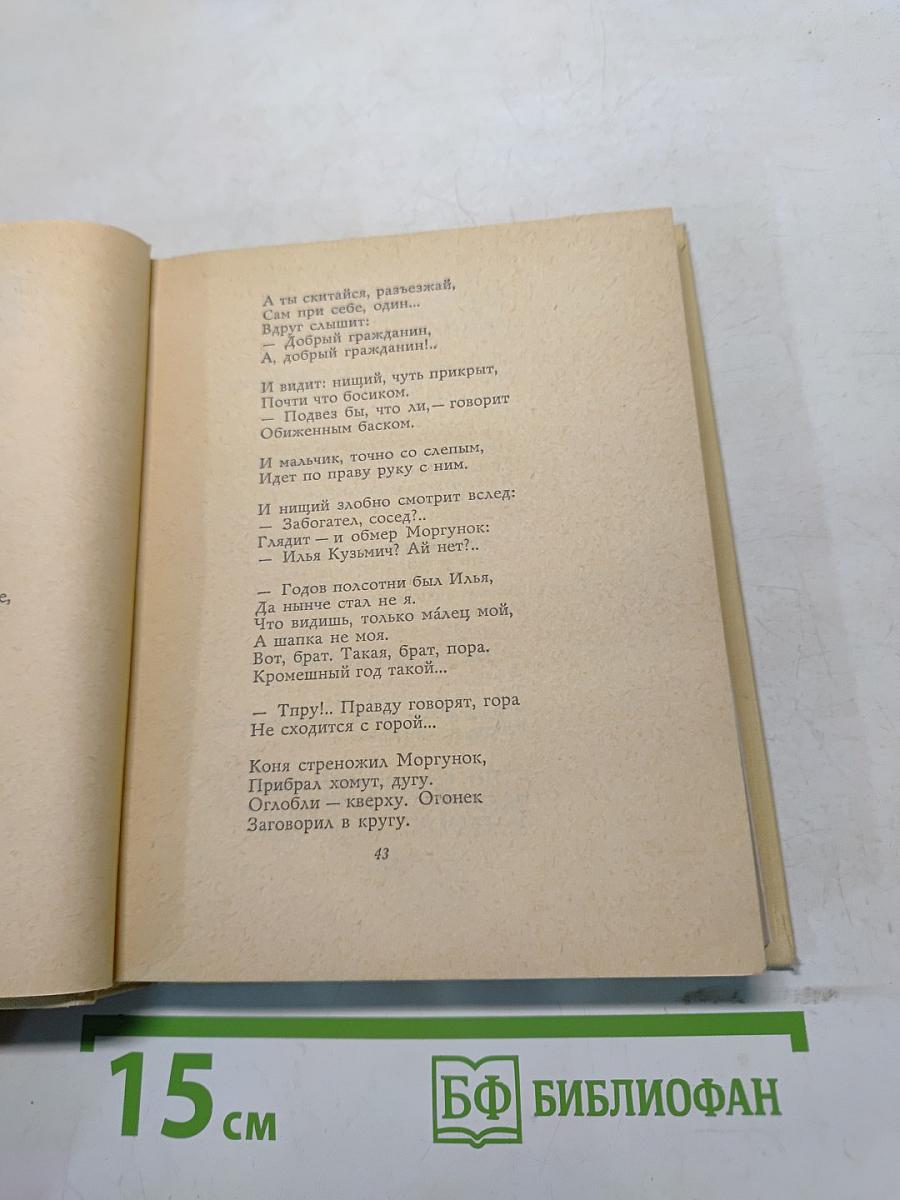 А ты скитайся, разъезжай,
Сам при себе, один...
Вдруг слышит:
— Добрый гражданин,
А, добрый гражданин!..
И видит: нищий, чуть прикрыт,
Почти что босиком.
— Подвез бы, что ли,— говорит
Обиженным баском.
И мальчик, точно со слепым,
Идет по праву руку с ним.
И нищий злобно смотрит вслед:
— Забогател, сосед?..
Глядит — и обмер Моргунок:
— Илья Кузьмич? Ай нет?..
— Годов полсотни был Илья,
Да нынче стал не я.
Что видишь, только мáлец мой,
А шапка не моя.
Вот, брат. Такая, брат, пора.
Кромешный год такой...
— Тпру!.. Правду говорят, гора
Не сходится с горой...
Коня стреножил Моргунок,
Прибрал хомут, дугу.
Оглобли — кверху. Огонек
Заговорил в кругу.
43
е,
15 см
БФ БИБЛИОФАН